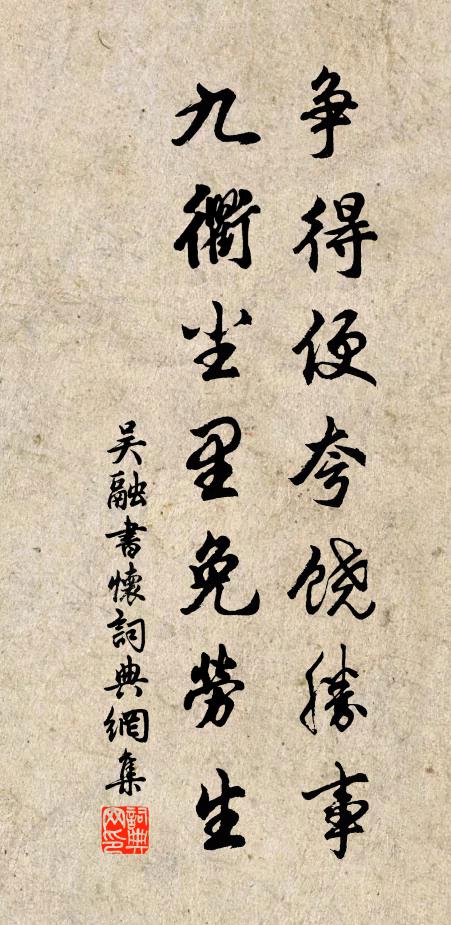 争得便夸饶勝事
九衢尘里免勞生
吴融書懷詞典網集
詞典网印